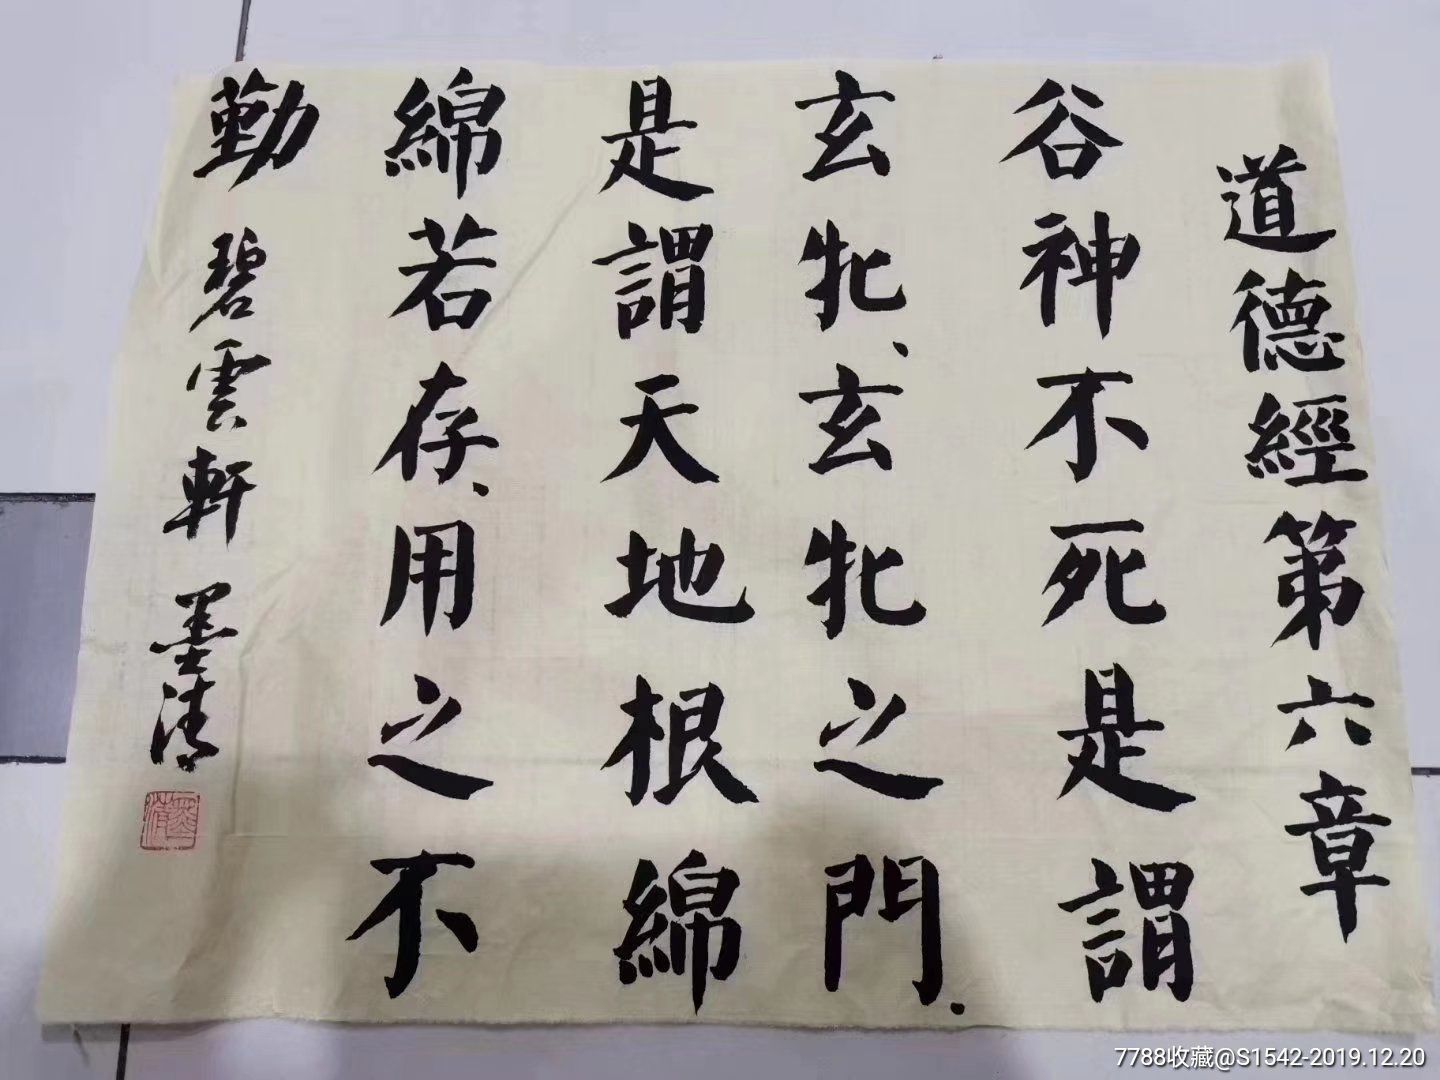 道德經第六章
谷神不死是謂
玄牝、玄牝之門.
是謂天地根綿
綿若存、用之不
勤 碧雲軒 墨清
墨清
7788收藏@S1542-2019.12.20